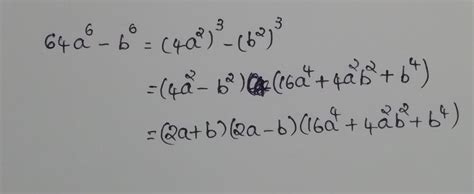 64a⁶ - b⁶ = (4a²)³ - (b²)³
= (4a² - b²) (16a⁴ + 4a²b² + b⁴)
= (2a+b)(2a-b)(16a⁴ + 4a²b² + b⁴)